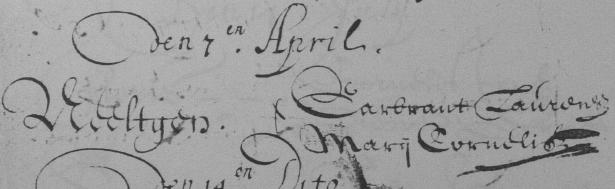 Den 7en April.
Neeltgen. { Garbrant Laurens
Marij Cornelis
Den 14en Dito